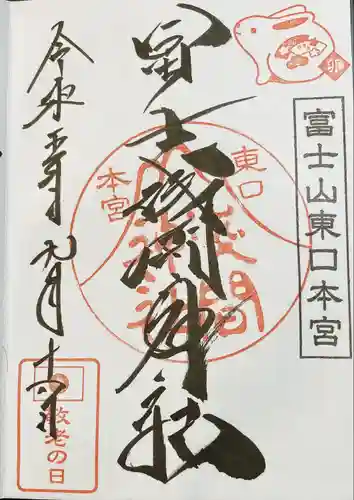 卯
富士山東口本宮
冨士淺間神社
東口
本宮
淺間
神社
令和五年九月十八日
敬老の日